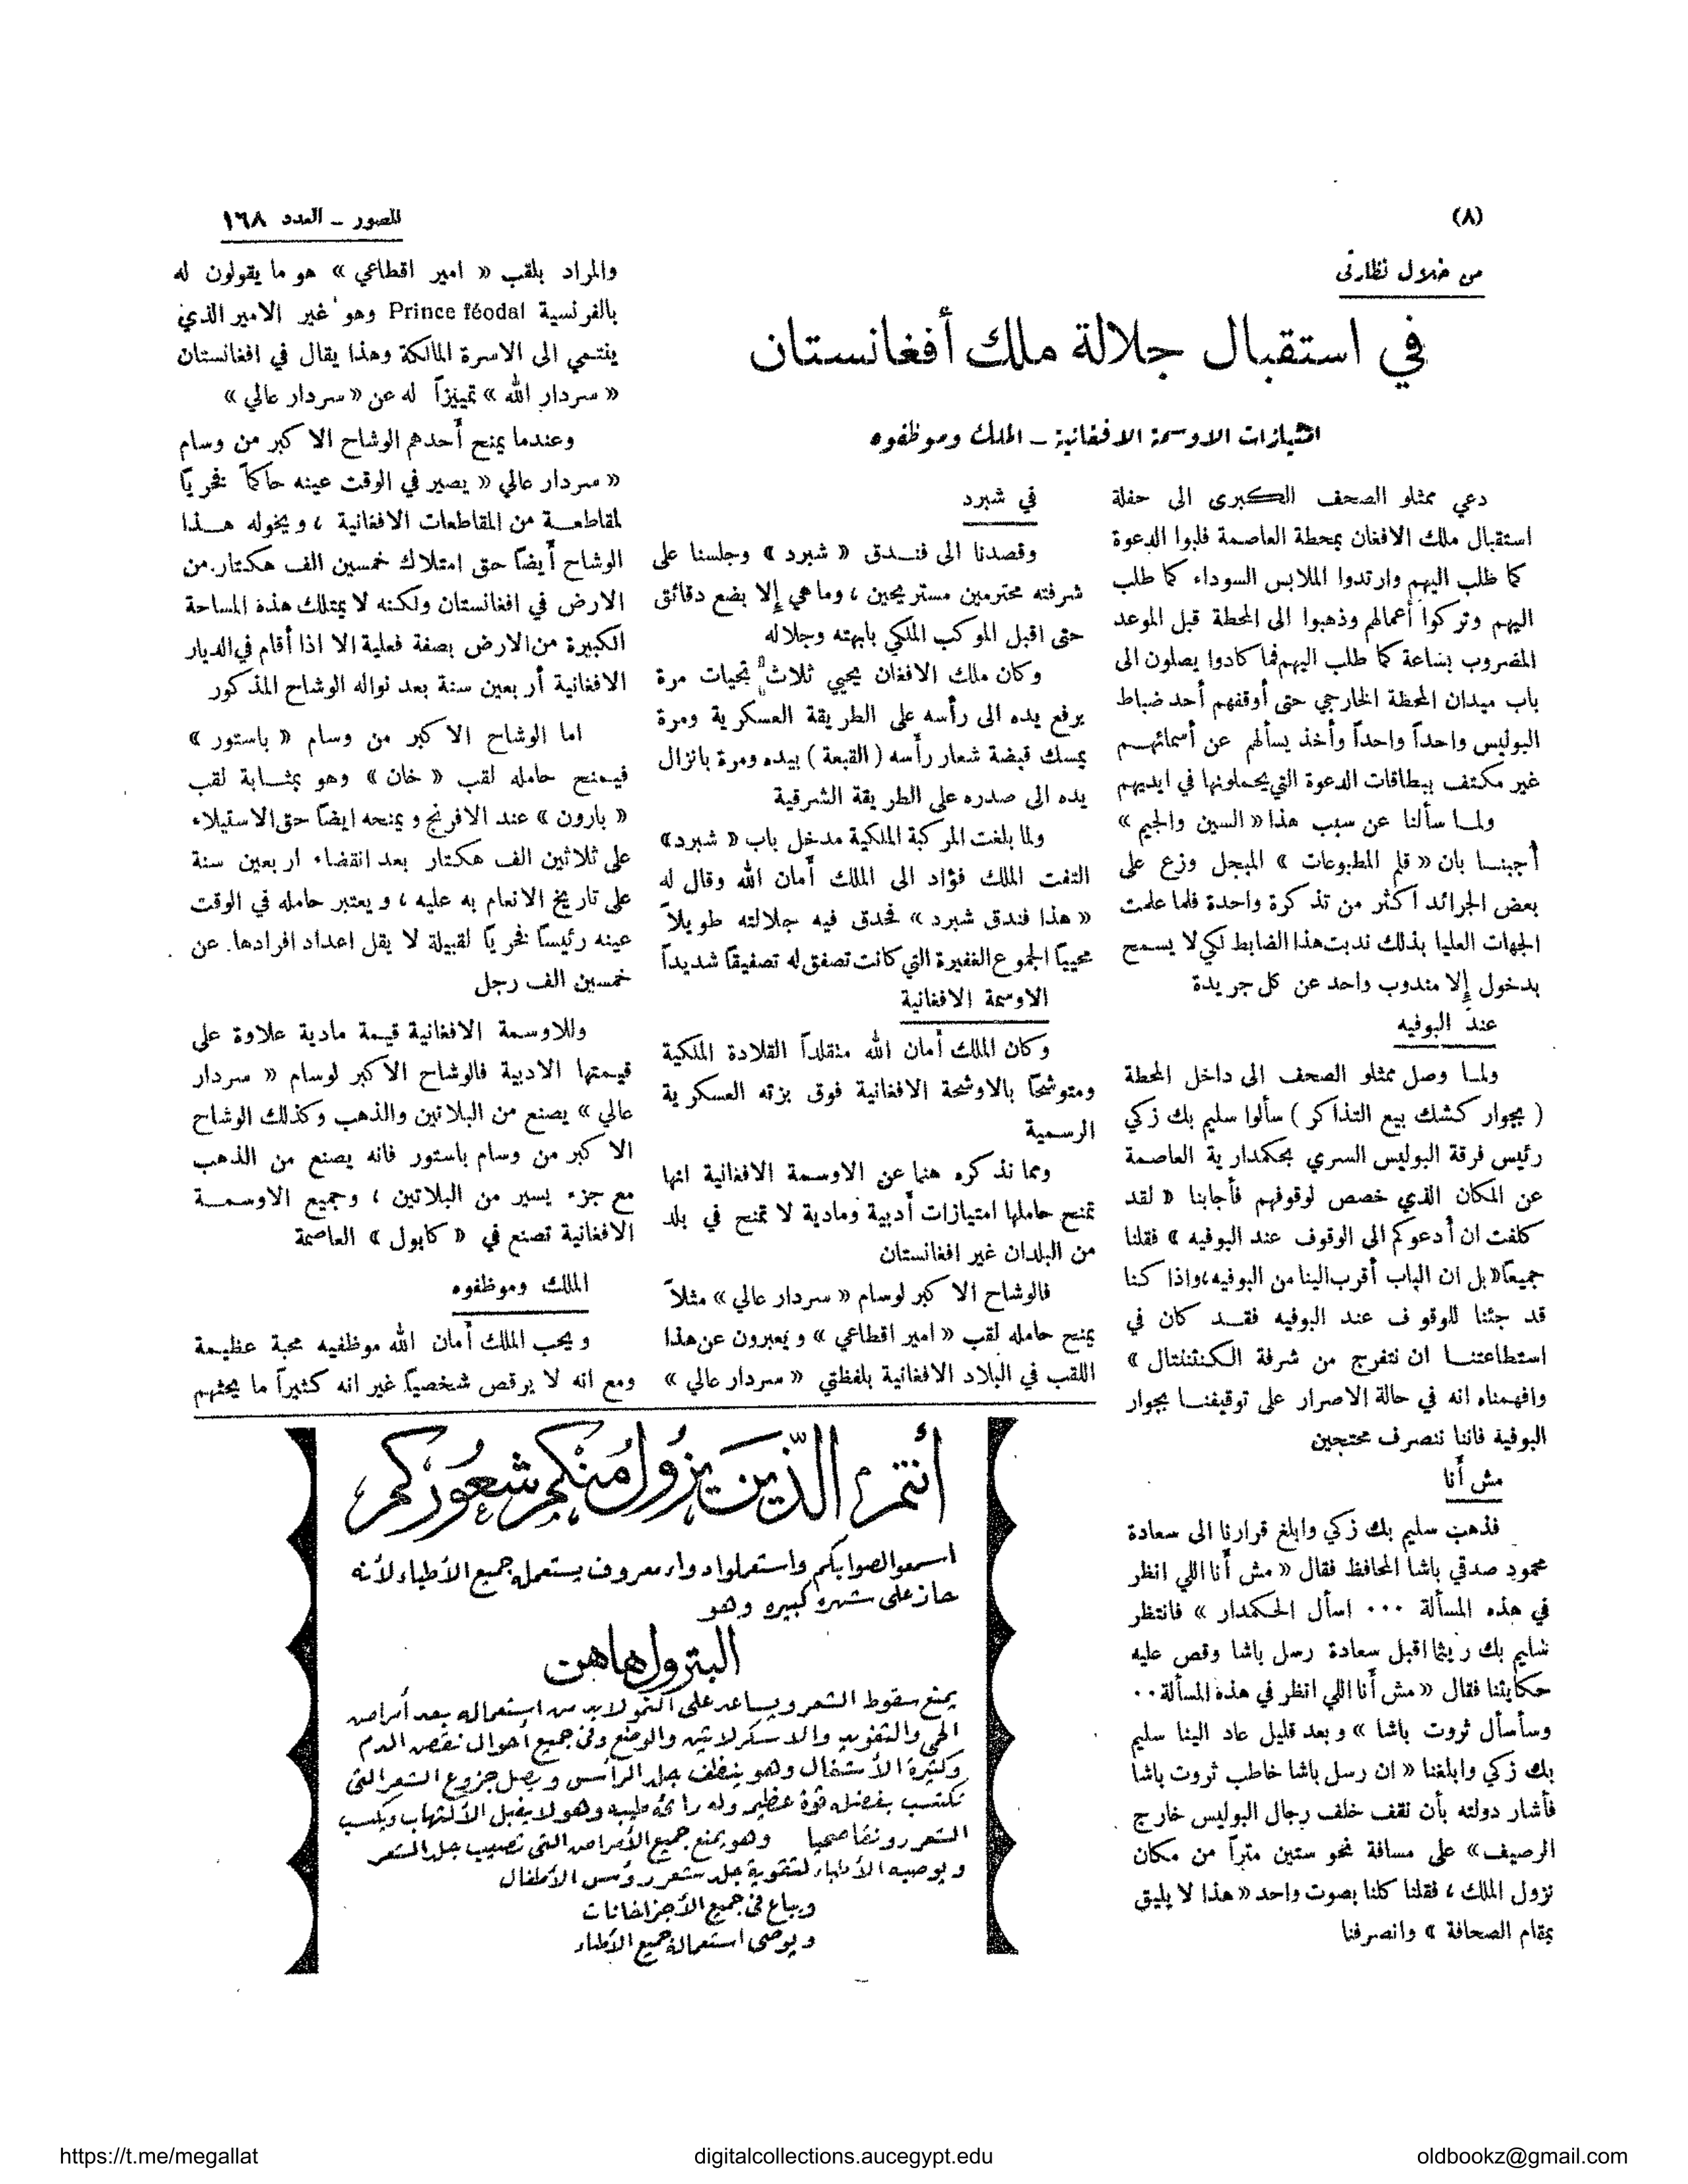 (٨)
المصور ـ العدد ١٦٨
من خلال نظارتى
في استقبال جلالة ملك أفغانستان
امتيازات الاوسمة الافغانية ـ الملك وموظفوه
دعي ممثلو الصحف الكبرى الى حفلة
استقبال ملك الافغان بمحطة العاصمة فلبوا الدعوة
كما طلب اليهم وارتدوا الملابس السوداء كما طلب
اليهم وتركوا أعمالهم وذهبوا الى المحطة قبل الموعد
المضروب بساعة كما طلب اليهم فما كادوا يصلون الى
باب ميدان المحطة الخارجي حتى أوقفهم أحد ضباط
البوليس واحداً واحداً وأخذ يسألهم عن أسمائهم
غير مكتف ببطاقات الدعوة التي يحملونها في ايديهم
ولما سألنا عن سبب هذا « السين والجيم »
أجبنا بان « قلم المطبوعات » المبجل وزع على
بعض الجرائد اكثر من تذكرة واحدة فلما علمت
الجهات العليا بذلك ندبت هذا الضابط لكي لا يسمح
بدخول إلا مندوب واحد عن كل جريدة
عند البوفيه
ولما وصل ممثلو الصحف الى داخل المحطة
( بجوار كشك بيع التذاكر ) سألوا سليم بك زكي
رئيس فرقة البوليس السري بحكمدارية العاصمة
عن المكان الذي خصص لوقوفهم فأجابنا « لقد
كلفت ان أدعوكم الى الوقوف عند البوفيه » فقلنا
جميعاً « بل ان الباب أقرب الينا من البوفيه ، واذا كنا
قد جئنا للوقوف عند البوفيه فقد كان في
استطاعتنا ان نتفرج من شرفة الكنتننتال »
وافهمناه انه في حالة الاصرار على توقيفنا بجوار
البوفية فاننا ننصرف محتجين
مش أنا
فذهب سليم بك زكي وابلغ قرارنا الى سعادة
محمود صدقي باشا المحافظ فقال « مش أنا اللي انظر
في هذه المسألة ... اسأل الحكمدار » فانتظر
سليم بك ريثما اقبل سعادة رسل باشا وقص عليه
حكايتنا فقال « مش أنا اللي انظر في هذه المسألة ..
وسأسأل ثروت باشا » وبعد قليل عاد الينا سليم
بك زكي وابلغنا « ان رسل باشا خاطب ثروت باشا
فأشار دولته بأن نقف خلف رجال البوليس خارج
الرصيف » على مسافة نحو ستين متراً من مكان
نزول الملك ، فقلنا كلنا بصوت واحد « هذا لا يليق
بمقام الصحافة » وانصرفنا
في شبرد
وقصدنا الى فندق « شبرد » وجلسنا على
شرفته محترمين مستريحين ، وما هي إلا بضع دقائق
حتى اقبل الموكب الملكي بابهته وجلاله
وكان ملك الافغان يحيي ثلاث تحيات مرة
يرفع يده الى رأسه على الطريقة العسكرية ومرة
يمسك قبضة شعار رأسه ( القبعة ) بيده ومرة بانزال
يده الى صدره على الطريقة الشرقية
ولما بلغت المركبة الملكية مدخل باب « شبرد »
التفت الملك فؤاد الى الملك أمان الله وقال له
« هذا فندق شبرد » فحدق فيه جلالته طويلاً
محيياً الجموع الغفيرة التي كانت تصفق له تصفيقاً شديداً
الاوسمة الافغانية
وكان الملك أمان الله متقلداً القلادة الملكية
ومتوشحاً بالاوشحة الافغانية فوق بزته العسكرية
الرسمية
ومما نذكره هنا عن الاوسمة الافغانية انها
تمنح حاملها امتيازات أدبية ومادية لا تمنح في بلد
من البلدان غير افغانستان
فالوشاح الاكبر لوسام « سردار عالي » مثلاً
يمنح حامله لقب « امير اقطاعي » ويعبرون عن هذا
اللقب في البلاد الافغانية بلفظتي « سردار عالي »
والمراد بلقب « امير اقطاعي » هو ما يقولون له
بالفرنسية Prince féodal وهو غير الامير الذي
ينتمي الى الاسرة المالكة وهذا يقال في افغانستان
« سردار الله » تمييزاً له عن « سردار عالي »
وعندما يمنح أحدهم الوشاح الاكبر من وسام
« سردار عالي » يصير في الوقت عينه حاكماً فخرياً
لمقاطعة من المقاطعات الافغانية ، ويخوله هذا
الوشاح أيضاً حق امتلاك خمسين الف هكتار من
الارض في افغانستان ولكنه لا يمتلك هذه المساحة
الكبيرة من الارض بصفة فعلية الا اذا أقام في الديار
الافغانية أربعين سنة بعد نواله الوشاح المذكور
اما الوشاح الاكبر من وسام « باستور »
فيمنح حامله لقب « خان » وهو بمثابة لقب
« بارون » عند الافرنج ويمنحه ايضاً حق الاستيلاء
على ثلاثين الف هكتار بعد انقضاء اربعين سنة
على تاريخ الانعام به عليه ، ويعتبر حامله في الوقت
عينه رئيساً فخرياً لقبيلة لا يقل اعداد افرادها عن
خمسين الف رجل
وللاوسمة الافغانية قيمة مادية علاوة على
قيمتها الادبية فالوشاح الاكبر لوسام « سردار
عالي » يصنع من البلاتين والذهب وكذلك الوشاح
الاكبر من وسام باستور فانه يصنع من الذهب
مع جزء يسير من البلاتين ، وجميع الاوسمة
الافغانية تصنع في « كابول » العاصمة
الملك وموظفوه
ويحب الملك أمان الله موظفيه محبة عظيمة
ومع انه لا يرقص شخصياً غير انه كثيراً ما يحثهم
أنتم الذين يزول منكم شعوركم
اسمعوا لصوابكم واستعملوا دواء معروف يستعمل جميع الأطباء لأنه
حاز على شهره كبيره وهو
البترول هاهن
يمنع سقوط الشعر ويساعد على النمو لابد من استعماله بعد أمراض
الحمى والتفويد والاسكرلاتين والوضع وفى جميع أحوال نقص الدم
وكثيرة الأشغال وهو ينظف جلد الرأس ويصل جزوع الشعر التى
تكتسب بفضله قوة عظيم وله رائحة طيبه وهو لا يقبل الألتهاب ويكسب
الشعر رونقا صحيا وهو يمنع جميع الأمراض التى تصيب جلد الشعر
ويوصيه الأطباء لتقوية جلد شعر رؤس الأطفال
ويباع فى جميع الأجزاخانات
ويوصى استعماله جميع الأطباء
https://t.me/megallat
digitalcollections.aucegypt.edu
oldbookz@gmail.com